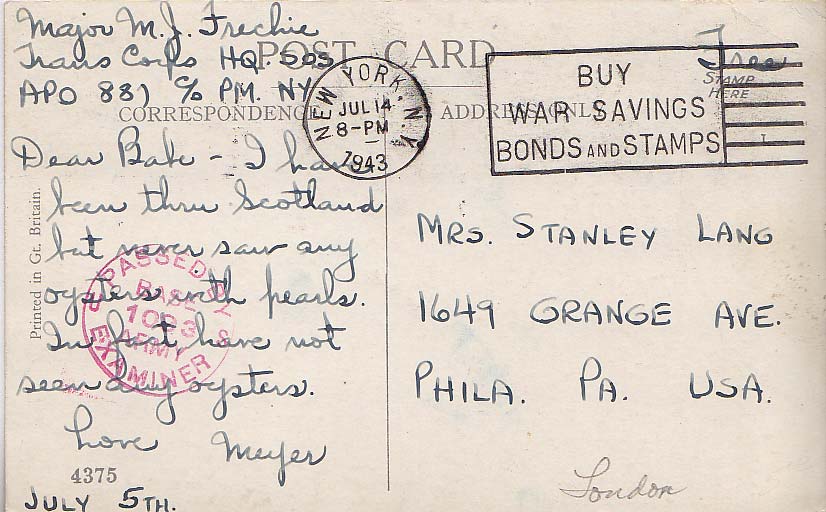 Major M.J. Frechie
Trans Corps HQ. SOS
APO 887 c/o PM. NY
POST CARD
Free
STAMP
HERE
CORRESPONDENCE
ADDRESS ONLY
NEW YORK, N.Y.
JUL 14
8-PM
1943
BUY
WAR SAVINGS
BONDS AND STAMPS
Dear Babe - I have
been thru Scotland
but never saw any
oysters with pearls.
In fact have not
seen any oysters.
Love Meyer
4375
JULY 5TH.
Printed in Gt. Britain.
PASSED BY
BASE
ARMY
EXAMINER
MRS. STANLEY LANG
1649 GRANGE AVE.
PHILA. PA. USA.
London